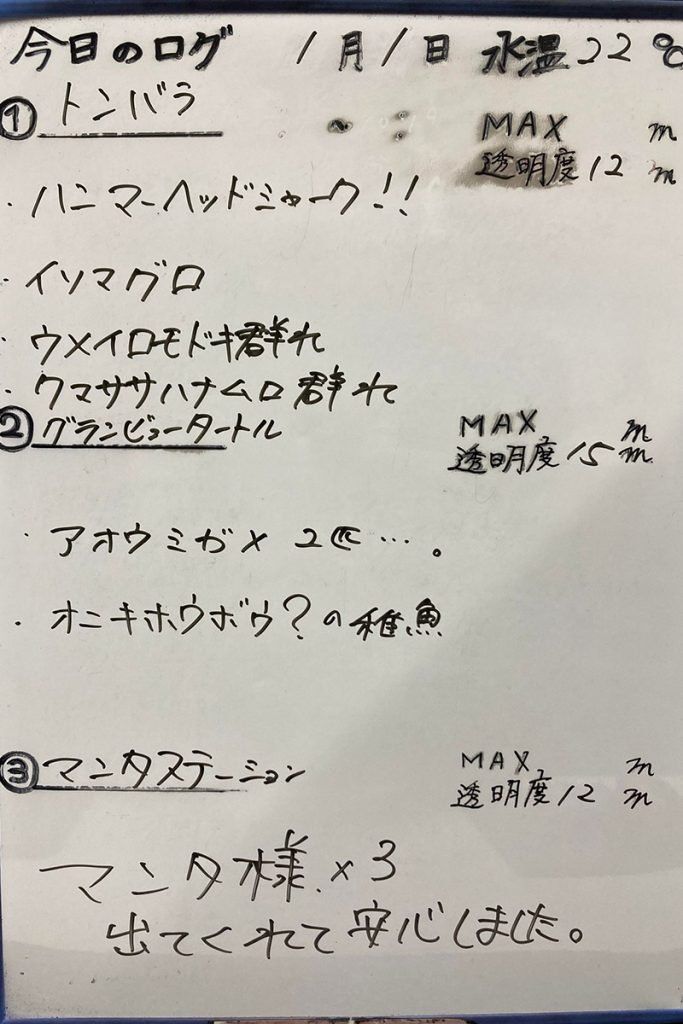 今日のログ 1月1日 水温22℃
① トンバラ MAX m
透明度12m
・ハンマーヘッドシャーク!!
・イソマグロ
・ウメイロモドキ群れ
・クマササハナムロ群れ
② グランビュータートル MAX m
透明度15m
・アオウミガメ 2匹…。
・オニキホウボウ?の稚魚
③ マンタステーション MAX m
透明度12m
マンタ様×3
出てくれて安心しました。